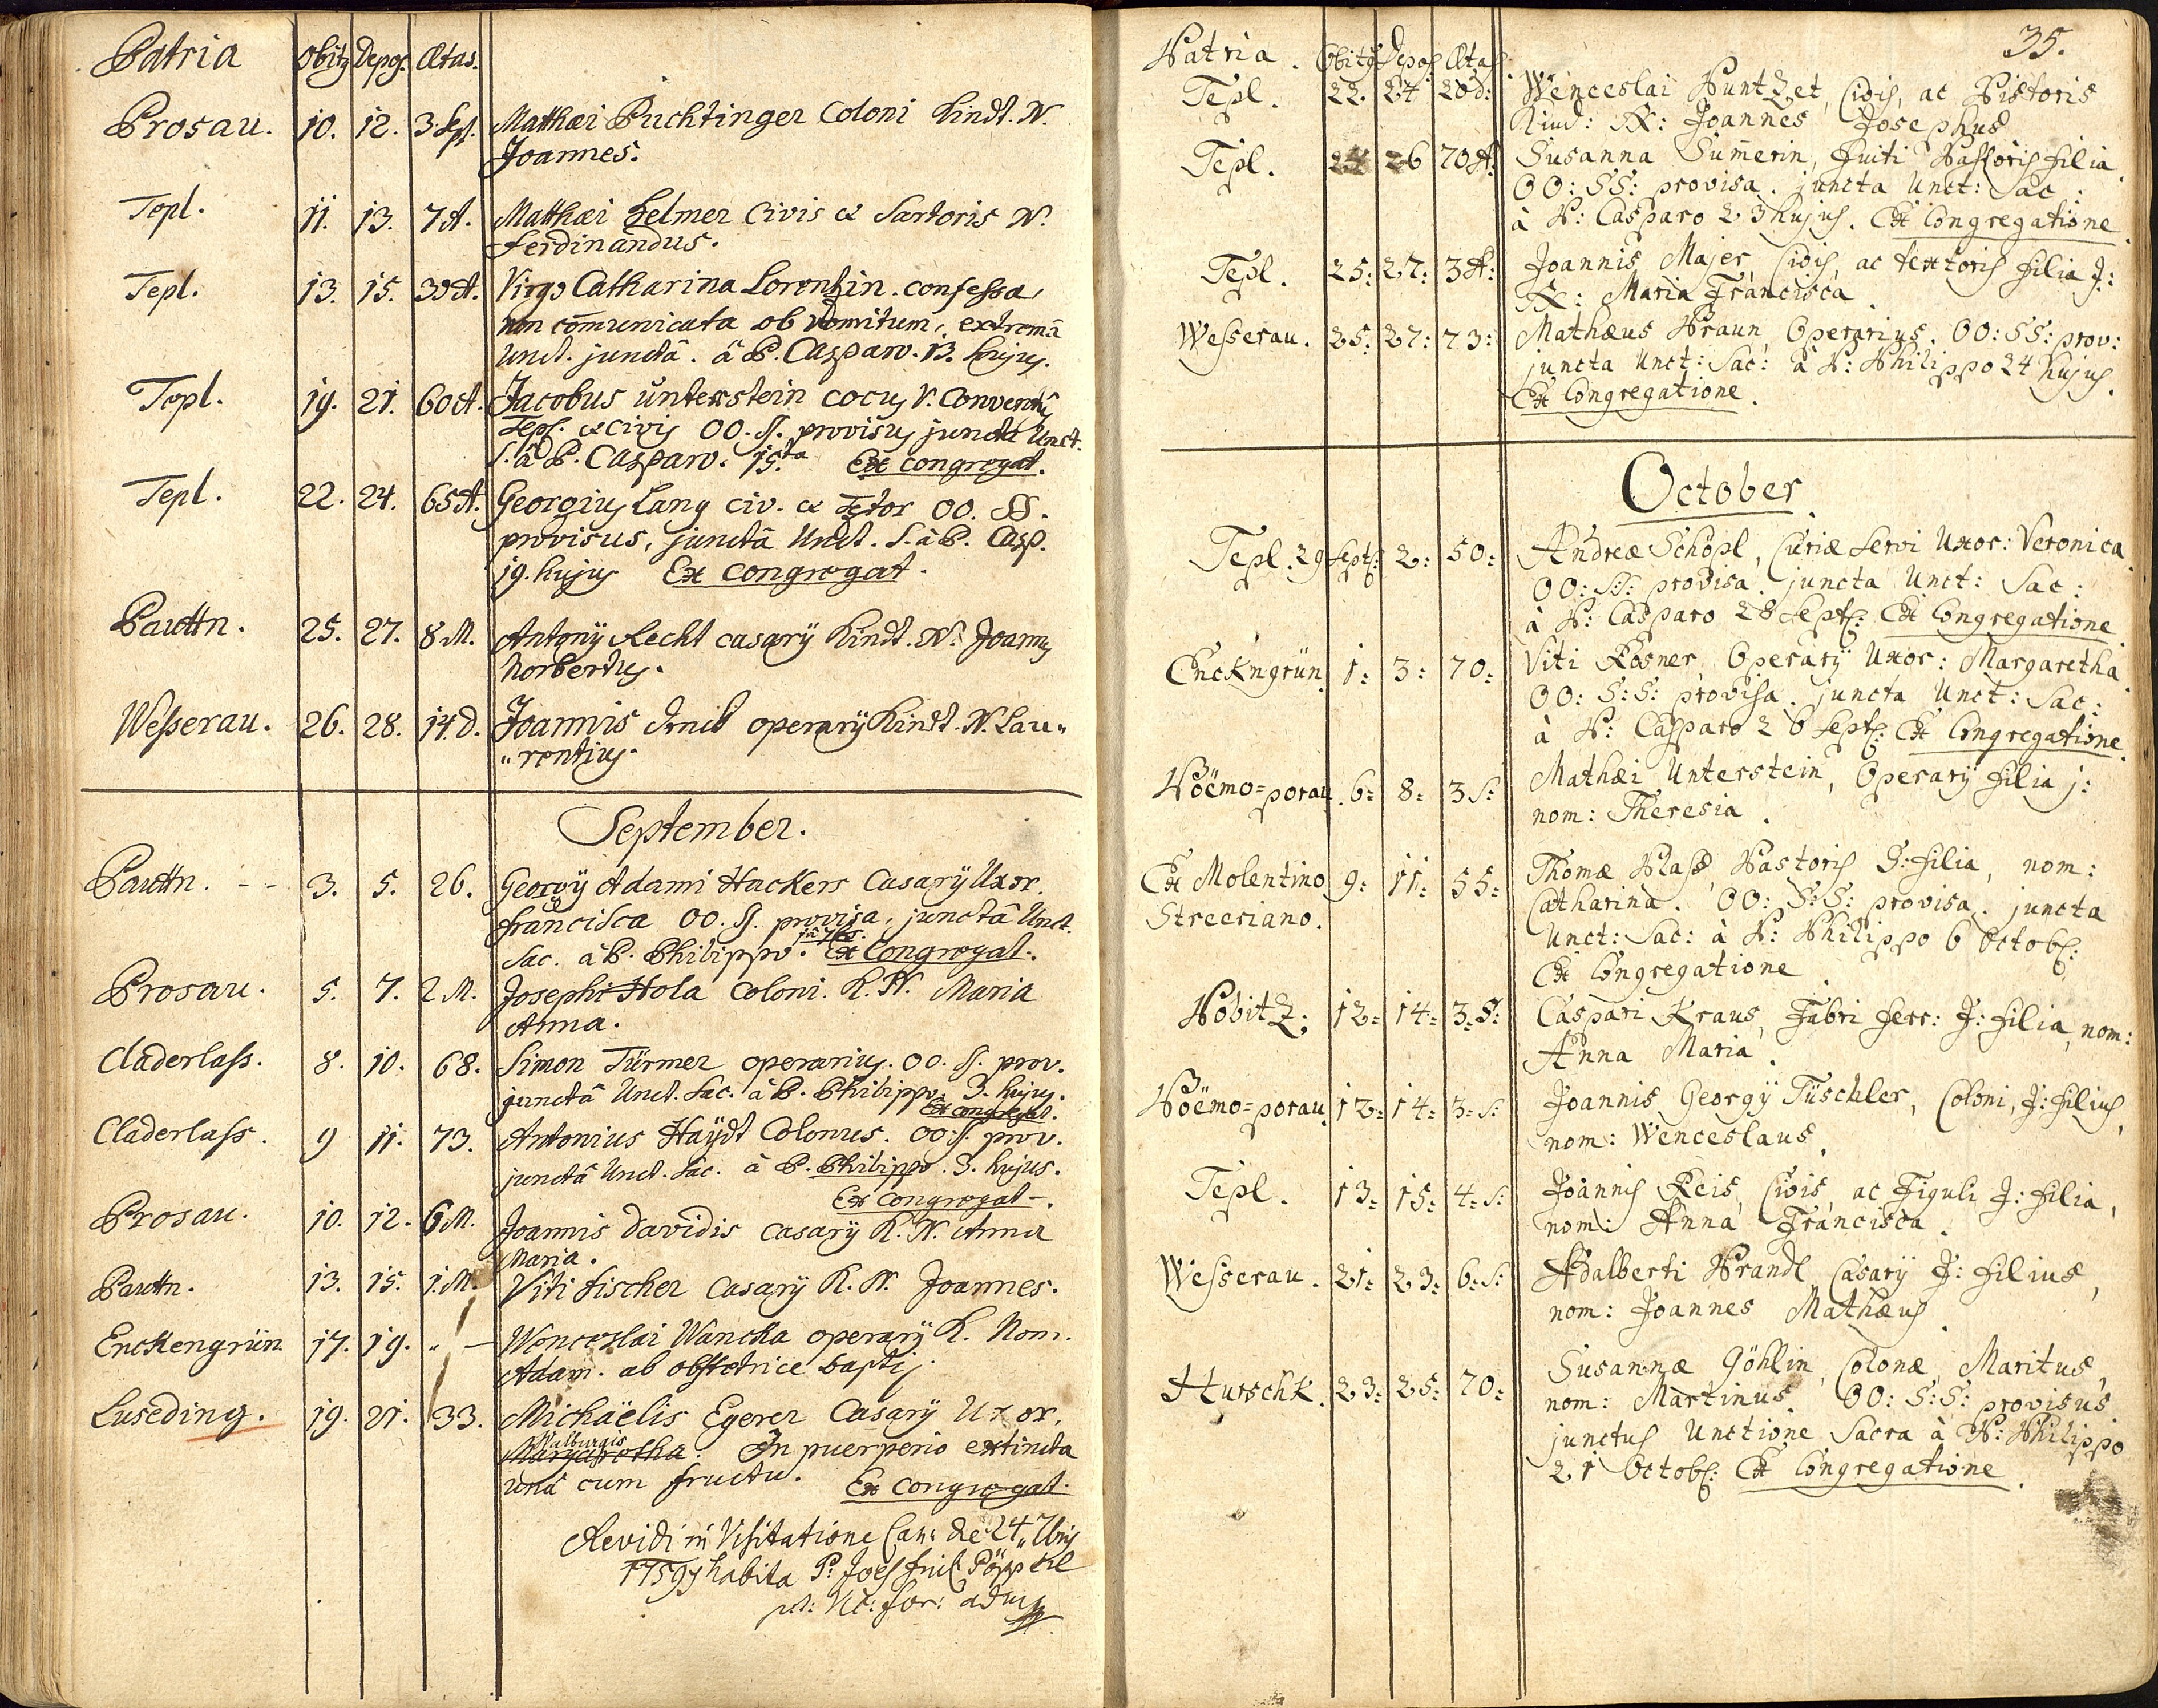 Patria Obitus Depos. Ætas.
Prosau. 10. 12. 3. Sept. Matthæi Puchtinger Coloni Kindt. N.
Joannes.
Tepl. 11. 13. 7 A. Matthæi Helmer Civis & Sartoris N.
Ferdinandus.
Tepl. 13. 15. 30 A. Virgo Catharina Lorentzin. confessa,
non comunicata ob vomitum, extremâ
Unct. junctâ. â P. Casparo. 13. hujus.
Tepl. 19. 21. 60 A. Jacobus Unterstein cocus V. Conventus
Tepl. & civis OO. SS. provisus junctâ Unct.
S. â P. Casparo. 15.ta Ex congregat.
Tepl. 22. 24. 65 A. Georgius Lang civ. & Textor OO. SS.
provisus, junctâ Unct. S. â P. Casp.
19. hujus Ex congregat.
Pauttn. 25. 27. 8 M. Antonÿ Recht casarÿ Kindt. N. Joannes
Norbertus.
Wesserau. 26. 28. 14. D. Joannis operarÿ Kindt. N. Lau„
„rentius.
September.
Pauttn. - - 3. 5. 26. Georgÿ Adami Hackers Casarÿ Uxor.
Francisca OO. SS. provisa, junctâ Unct.
Sac. â P. Philippo. Ex Congregat.
Prosau. 5. 7. 2 M. Josephi Hola Coloni. K. N. Maria
Anna.
Claderlass. 8. 10. 68. Simon Türmer operarius. OO. SS. prov.
junctâ Unct. Sac. â P. Philippo. 3. hujus.
Ex congregat.
Claderlass. 9 11. 73. Antonius Haÿdt Colonus. OO. SS. prov.
junctâ Unct. Sac. â P. Philippo. 3. hujus.
Ex congregat.
Prosau. 10. 12. 6 M. Joannis Davidis casarÿ K. N. Anna
Maria.
Pautn. 13. 15. 1. M. Viti Fischer Casarÿ K. N. Joannes.
Enckengrün. 17. 19. „ — Wenceslai Wancka operarÿ K. Nom.
Adam. ab obstetrice bapt.
Luseding. 19. 21. 33. Michäelis Egerer Casarÿ Uxor.
Walburgis
Margaretha In puerperio extincta
unâ cum fructu. Ex congregat.
Revidi in Visitatione Can: de 24 7bris
1759 habita P. Joes Pöppel
35.
Patria. Obitus Depos Ætas.
Tepl. 22. 24 20 d: Wenceslai Puntzet, Civis, ac Pistoris
Kind: N: Joannes Josephus
Tepl. 24 26 70 A: Susanna Sumerin, fuiti Pastoris filia.
OO: SS: provisa. juncta Unct: Sac:
à P: Casparo 23 hujus. Ex Congregatione.
Tepl. 25: 27: 3 A: Joannis Majer Civis ac textoris filia J:
N: Maria Francisca.
Wesserau. 25: 27: 73: Mathæus Praun Operarius. OO: SS: prov:
juncta Unct: Sac: à P: Philippo 24 hujus.
Ex Congregatione.
October
Tepl. 29 Septb: 2: 50: Andreæ Schöpl, Curiæ Servi Uxor: Veronica.
OO: SS: provisa. juncta Unct: Sac:
à P: Casparo 28 Septb: Ex Congregatione.
Enckngrün. 1: 3: 70: Viti Rösner Operarÿ Uxor: Margaretha.
OO: S:S: provisa. juncta Unct: Sac:
à P: Casparo 26 Septb: Ex Congregatione.
Böëmo=porau. 6: 8: 3 S: Mathæi Unterstein, Operarÿ filia j:
nom: Theresia.
Ex Molentino 9: 11: 55: Thomæ Plass, Pastoris J: filia, nom:
Streeriano. Catharina. OO: S:S: provisa. juncta
Unct: Sac: à P: Philippo 6 Octob:
Ex Congregatione.
Pobitz. 12: 14: 3: S: Caspari Kraus, Fabri ferr: J: filia, nom:
Anna Maria.
Böëmo=porau. 12: 14: 3: S: Joannis Georgÿ Tüschler, Coloni, J: filius,
nom: Wenceslaus.
Tepl. 13: 15: 4: S: Joannis Reis, Civis ac Figuli J: filia,
nom: Anna Francisca.
Wesserau. 21: 23: 6: S: Adalberti Prandl Casarÿ J: filius,
nom: Joannes Mathæus.
Hurschk. 23: 25: 70: Susannæ Göhlin Colonæ Maritus,
nom: Martinus. OO: S:S: provisus
junctus Unctione Sacra à P: Philippo
21 Octob: Ex Congregatione.